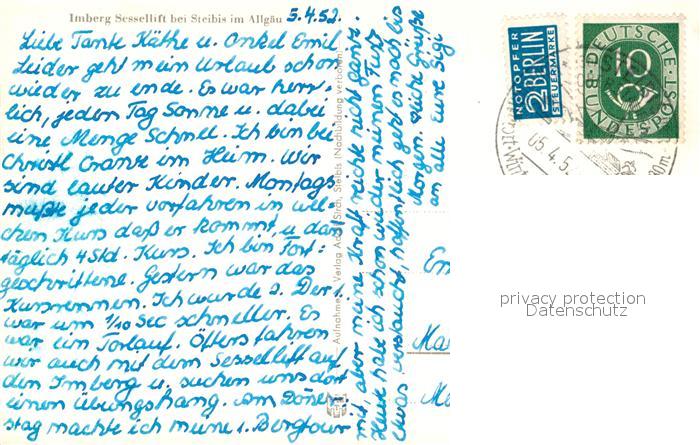 Imberg Sessellift bei Steibis im Allgäu
5.4.52.
Liebe Tante Käthe u. Onkel Emil
Leider geht mein Urlaub schon
wieder zu ende. Es war herr-
lich, jeden Tag Sonne u. dabei
eine Menge Schnee. Ich bin bei
Christl Cranz im Heim. Wir
sind lauter Kinder. Montags
mußte jeder vorfahren in wel-
chen Kurs daß er kommt, u. dan
täglich 4 Std. Kurs. Ich bin Fort-
geschrittene. Gestern war das
Kursrennen. Ich wurde 2. Der 1.
war um 1/10 Sec schneller. Es
war ein Torlauf. Öfters fahren
wir auch mit dem Sessellift auf
den Imberg u. suchen uns dort
einen Übungshang. Am Döners-
stag machte ich meine 1. Bergtour
mit, aber meine Kraft reichte nicht ganz.
Heute habe ich schon wieder meinen Fuß
etwas verstaucht, hoffentlich geht es noch bis
Morgen. Viele Grüße
an alle Eure Sigi
Aufnahme u. Verlag
Steibis (Nachbildung verboten)
NOTOPFER
2 BERLIN
STEUERMARKE
DEUTSCHE
BUNDESPOST
10
05.4.5
privacy protection
Datenschutz